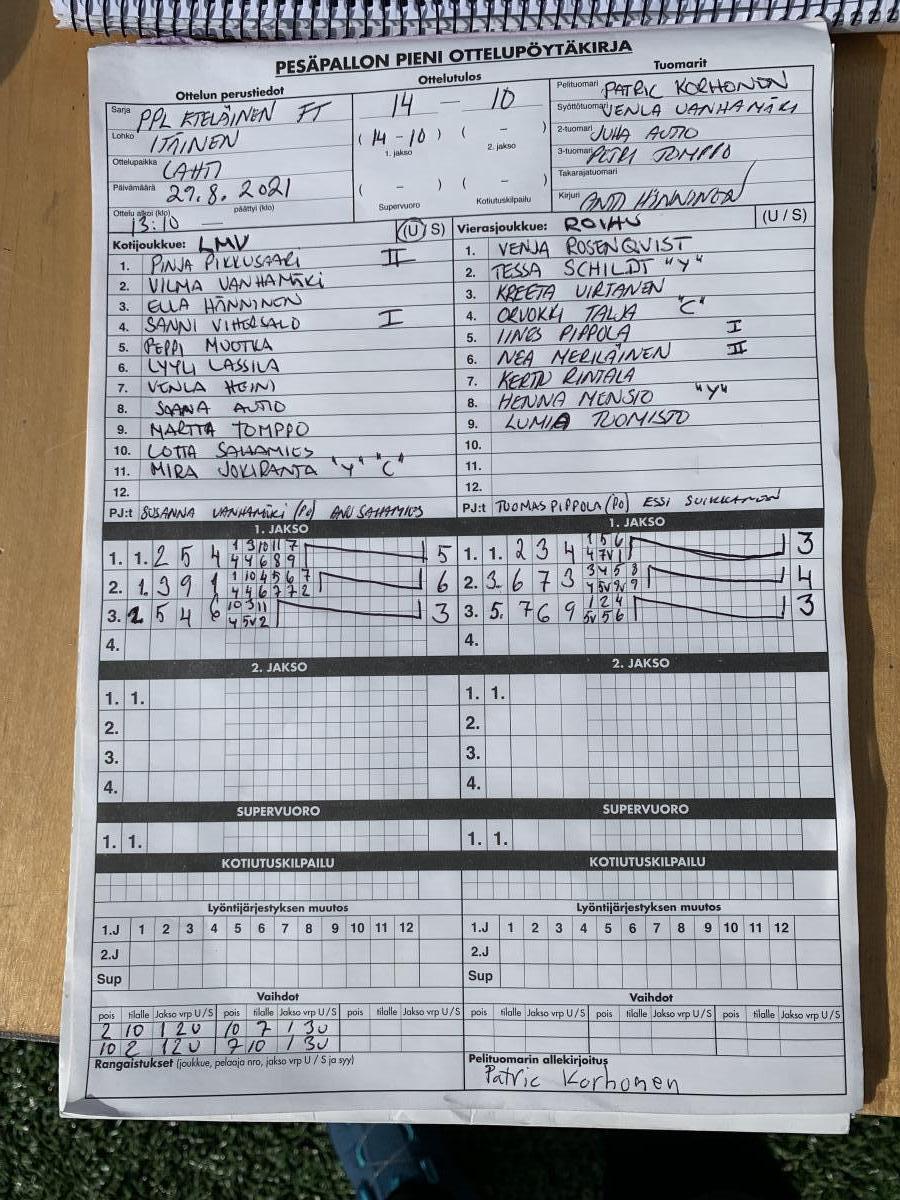 PESÄPALLON PIENI OTTELUPÖYTÄKIRJA
Ottelun perustiedot
Sarja PPL ETELÄINEN FT
Lohko ITÄINEN
Ottelupaikka LAHTI
Päivämäärä 29.8.2021
Ottelu alkoi (klo) päättyi (klo)
13:10
Ottelutulos
14 – 10
( 14 – 10 ) ( – )
1. jakso 2. jakso
( – ) ( – )
Supervuoro Kotiutuskilpailu
Tuomarit
Pelituomari PATRIC KORHONEN
Syöttötuomari VENLA VANHAMÄKI
2-tuomari JUHA AUTIO
3-tuomari PETRI TOMPPO
Takarajatuomari
Kirjuri ANTO HÄNNINEN
Kotijoukkue: LMV (U / S)
1. PINJA PIKKUSAARI II
2. VILMA VANHAMÄKI
3. ELLA HÄNNINEN
4. SANNI VIHERSALO I
5. PEPPI MUOTKA
6. LYYLI LASSILA
7. VENLA HEINI
8. SAANA AUTIO
9. MARTTA TOMPPO
10. LOTTA SAHAMIES
11. MIRA JOKIRANTA "Y" "C"
12.
PJ:t SUSANNA VANHAMÄKI (PJ) ANU SAHAMIES
Vierasjoukkue: ROIHU (U / S)
1. VENJA ROSENQVIST
2. TESSA SCHILDT "Y"
3. KREETA VIRTANEN
4. ORVOKKI TALJA "C"
5. IINES PIPPOLA I
6. NEA MERILÄINEN II
7. KERTTU RINTALA
8. HENNA MENSIO "Y"
9. LUMIA TUOMISTO
10.
11.
12.
PJ:t TUOMAS PIPPOLA (PJ) ESSI SUIKKANEN
1. JAKSO
1. 1. 2 5 4 1 3 10 11 7 5
4 4 6 8 9
2. 1. 3 9 1 1 10 4 5 6 7 6
4 4 6 7 7 2
3. 2 5 4 6 10 3 11 3
4 5V 2
4.
1. JAKSO
1. 1. 2 3 4 1 5 6 3
4 7V 1
2. 3. 6 7 3 3 4 5 8 4
4 5V 2V 9
3. 5. 7 6 9 1 2 4 3
5V 5 6
4.
2. JAKSO
1. 1.
2.
3.
4.
2. JAKSO
1. 1.
2.
3.
4.
SUPERVUORO
1. 1.
SUPERVUORO
1. 1.
KOTIUTUSKILPAILU
KOTIUTUSKILPAILU
Lyöntijärjestyksen muutos
1.J 1 2 3 4 5 6 7 8 9 10 11 12
2.J
Sup
Lyöntijärjestyksen muutos
1.J 1 2 3 4 5 6 7 8 9 10 11 12
2.J
Sup
Vaihdot
pois tilalle Jakso vrp U/S pois tilalle Jakso vrp U/S pois tilalle Jakso vrp U/S
2 10 1 2U 10 7 1 3U
10 2 1 2U 7 10 1 3U
Vaihdot
pois tilalle Jakso vrp U/S pois tilalle Jakso vrp U/S pois tilalle Jakso vrp U/S
Rangaistukset (joukkue, pelaaja nro, jakso vrp U / S ja syy)
Pelituomarin allekirjoitus
Patric Korhonen